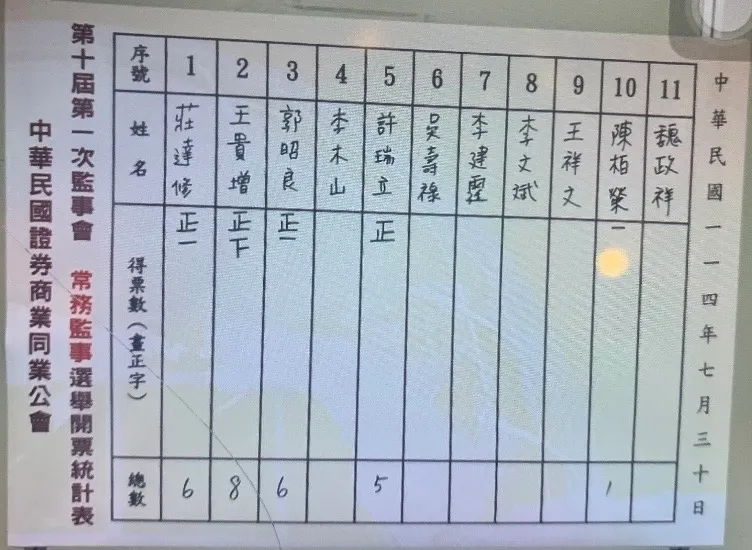 中華民國證券商業同業公會
第十屆第一次監事會 常務監事選舉開票統計表
序號 1 2 3 4 5 6 7 8 9 10 11
姓名 莊達修 王貴增 郭昭良 李木山 許瑞立 吳壽祿 李建霆 李文斌 王祥文 陳柏榮 魏政祥
得票數(畫正字) 正一 正下 正一 正 一
總數 6 8 6 5 1
中華民國一一四年七月三十日